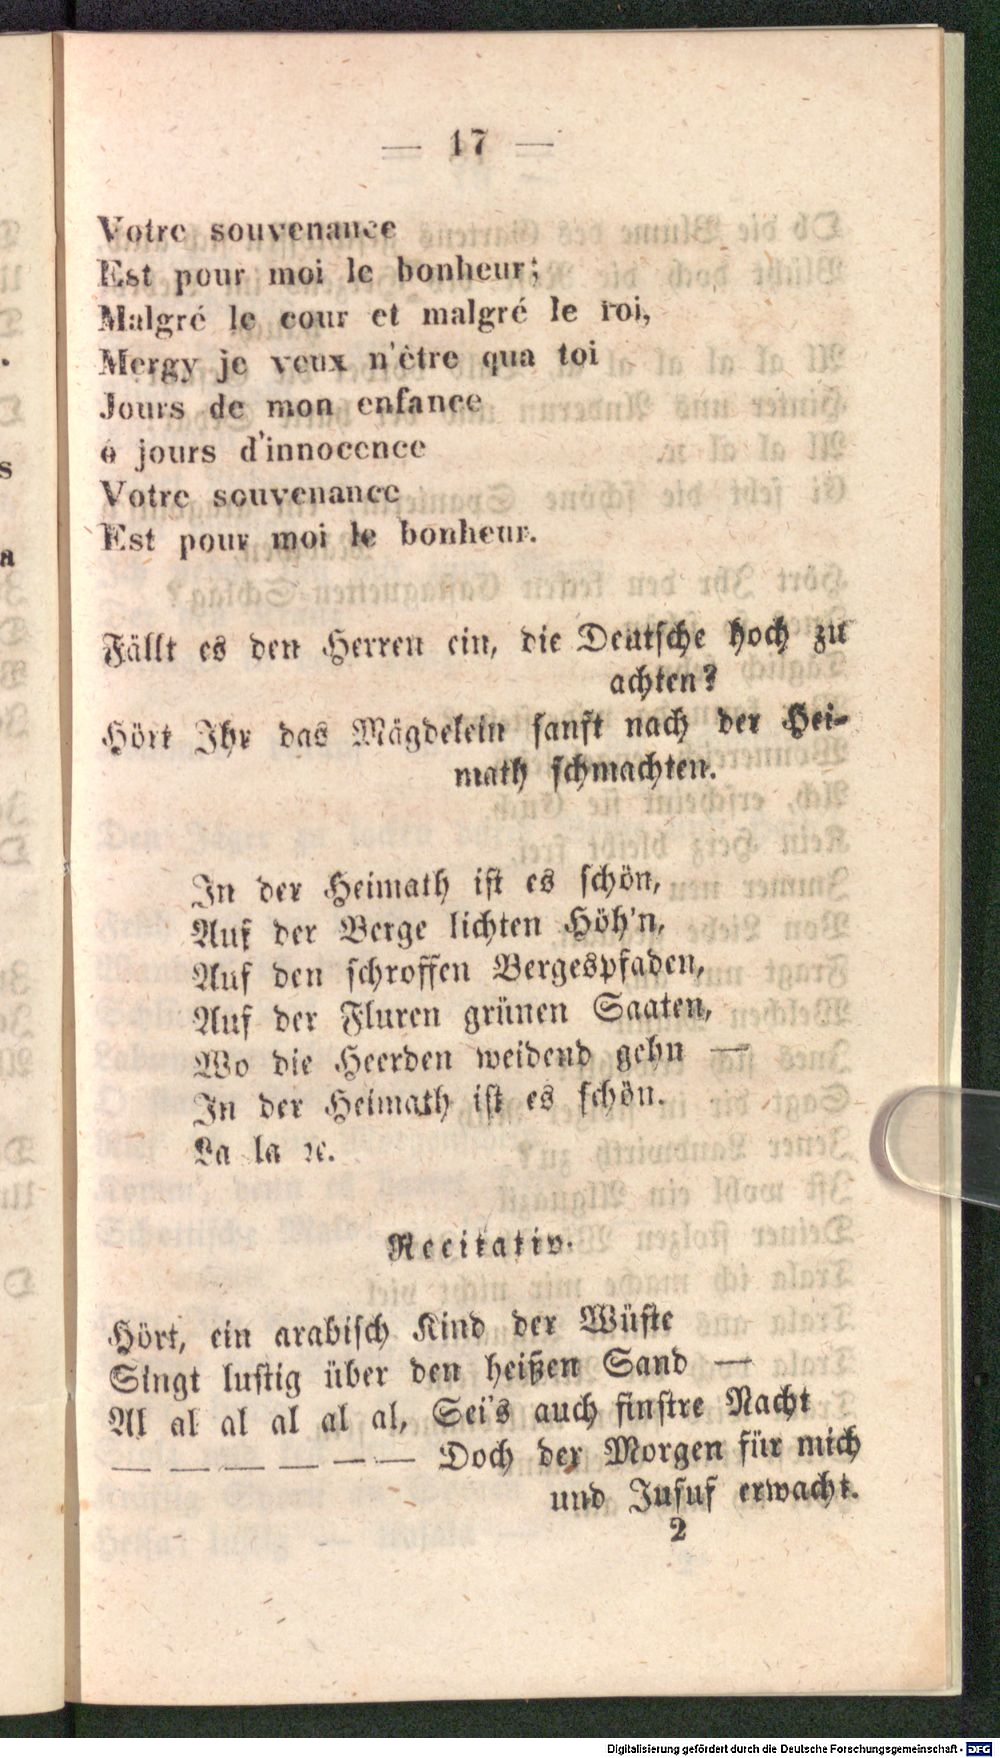 — 17 —
Votre souvenance
Est pour moi le bonheur;
Malgré le cour et malgré le roi,
Mergy je veux n'être qua toi
Jours de mon enfance
ô jours d'innocence
Votre souvenance
Est pour moi le bonheur.
Fällt es den Herren ein, die Deutsche hoch zu
achten?
Hört Ihr das Mägdelein sanft nach der Hei-
math schmachten.
In der Heimath ist es schön,
Auf der Berge lichten Höh'n,
Auf den schroffen Bergespfaden,
Auf der Fluren grünen Saaten,
Wo die Heerden weidend gehn —
In der Heimath ist es schön.
La la ꝛc.
Recitativ.
Hört, ein arabisch Kind der Wüste
Singt lustig über den heißen Sand —
Al al al al al al, Sei's auch finstre Nacht
— — — — — — Doch der Morgen für mich
und Jusuf erwacht.
2
Digitalisierung gefördert durch die Deutsche Forschungsgemeinschaft - DFG